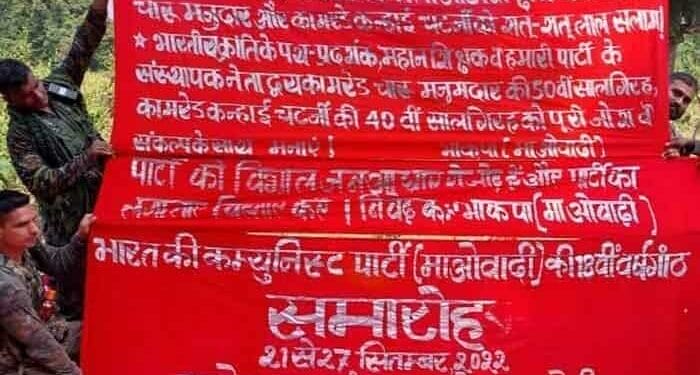 चारू मजुदार और कामरेड कन्हाई चटर्जी को शत-शत लाल सलाम।
★ भारतीय क्रांति के पथ-प्रदर्शक, महान शिक्षक व हमारी पार्टी के
संस्थापक नेता द्वय कामरेड चारू मजुमदार की 50वीं सालगिरह,
कामरेड कन्हाई चटर्जी की 40 वीं सालगिरह को पूरी
संकल्प के साथ मनाएं। भाकपा (माओवादी)
पार्टी की विशाल और पार्टी का
लगातार विस्तार करें। भाकपा (माओवादी)
भारत की कम्युनिस्ट पार्टी (माओवादी) की 18वीं वर्षगांठ
समारोह
21 से 27 सितम्बर, 2022